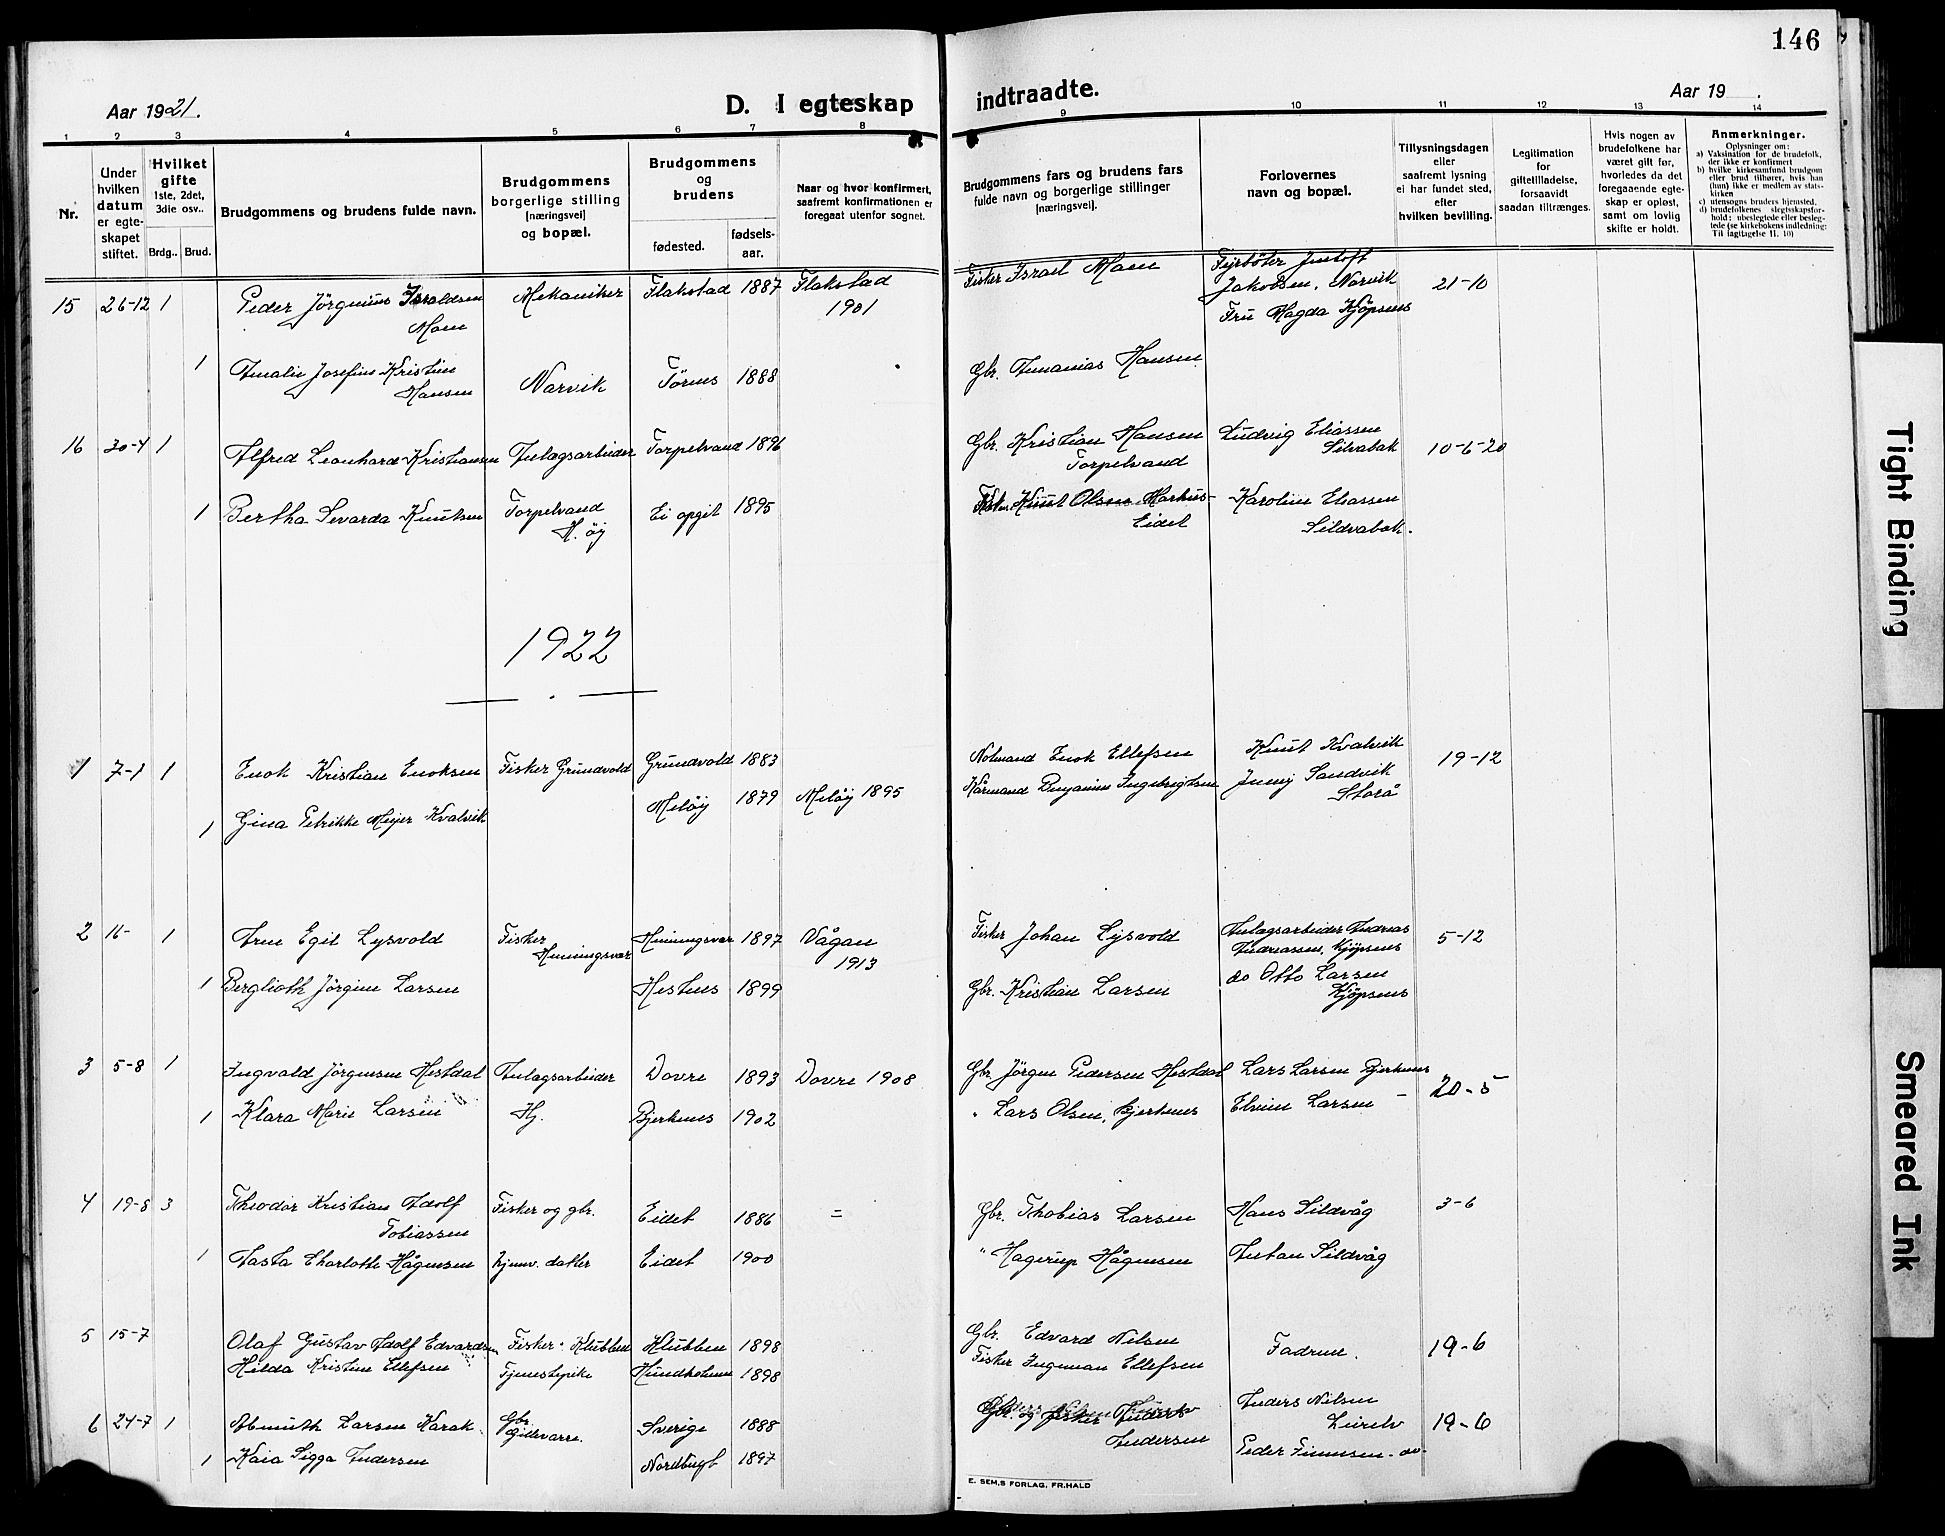 146
Aar 1921.
D. I egteskap indtraadte.
Aar 19 .
1 2 3 4 5 6 7 8 9 10 11 12 13 14
Nr.
Under hvilken datum er egteskapet stiftet.
Hvilket gifte 1ste, 2det, 3die osv..
Brdg.. Brud.
Brudgommens og brudens fulde navn.
Brudgommens borgerlige stilling (næringsvei) og bopæl.
Brudgommens og brudens
fødested. fødselsaar.
Naar og hvor konfirmert, saafremt konfirmationen er foregaat utenfor sognet.
Brudgommens fars og brudens fars fulde navn og borgerlige stillinger (næringsvei).
Forlovernes navn og bopæl.
Tillysningsdagen eller saafremt lysning ei har fundet sted, efter hvilken bevilling.
Legitimation for giftetilladelse, forsaavidt saadan tiltrænges.
Hvis nogen av brudefolkene har været gift før, hvorledes da det foregaaende egteskap er opløst, samt om lovlig skifte er holdt.
Anmerkninger.
Oplysninger om:
a) Vaksination for de brudefolk, der ikke er konfirmert
b) hvilke kirkesamfund brudgom eller brud tilhører, hvis han (hun) ikke er medlem av statskirken
c) utensogns bruders hjemsted.
d) brudefolkenes slegtsskapsforhold: ubeslegtede eller beslegtede (se kirkebokens indledning: Til iagttagelse 11. 10)
15 26-12 1 Peder Jörginius Israldsen Moen Mekaniker Flakstad 1887 Flakstad 1901 Fisker Israel Moen Fyrbøter Jakobsen, Narvik 21-10
Fru Magda Kjøpsnes
1 Amalie Josefine Kristine Hansen Narvik 1888 Gbr. Ananias Hansen
16 30-4 1 Alfred Leonhard Kristiansen Anlagsarbeider Forpelvand 1896 Gbr. Kristian Hansen Forpelvand Ludvig Eliassen Sildvabak 10-6-20
1 Bertha Sevarda Knutsen Forpelvand Ei opgit 1895 Knut Olsen Markus-Eidet Karoline Eliassen Sildvabak.
1922
1 7-1 1 Enok Kristian Enoksen Fisker Grundvold Grundvold 1883 Notmand Enok Ellefsen Knut Kvalvik 19-12
1 Gina Petrikke Meyer Kvalvik Meløy 1879 Meløy 1895 Benjamin Ingebrigtsen Jenny Sandvik Storå
2 16- 1 Arne Egil Lysvold Fisker Henningsvær Henningsvær 1897 Vågan 1913 Fisker Johan Lysvold Anlagsarbeider Andreas Andreassen, Kjöpsnes 5-12
1 Berglioth Jörgine Larsen Hestnes 1899 Gbr. Kristian Larsen do Otto Larsen Kjöpsnes
3 5-8 1 Ingvald Jörgensen Hestdal Anlagsarbeider Dovre 1893 Dovre 1908 Gbr Jörgen Pedersen Hestdal Lars Larsen Bjerknes 20-5
1 Klara Marie Larsen Hj. Bjerknes 1902 " Lars Olsen, Bjerknes Larsen -
4 19-8 3 Theodor Kristian Adolf Tobiassen Fisker og gbr. Eidet 1886 = Gbr. Thobias Larsen Hans Sildvåg 3-6
1 Aasta Charlotte Hågensen hjemv. datter Eidet 1900 " Hagerup Hågensen Sildvåg
5 15-7 Olaf Gustav Adolf Edvardsen Fisker. Klubben Klubben 1898 Gbr. Edvard Nilsen Fadrene. 19-6
Hilda Kristine Ellefsen Tjenestepike Hundholmen 1898 Fisker Ingeman Ellefsen
6 24-7 1 Larsen Karak Gbr. Sverige 1888 Anders Nilsen Leirelv 19-6
1 Kaia Sigga Andersen Nordbugt 1897 Gbr. og fisker Anders Andersen Peder Finnesen - do -
E. SEM,S FORLAG, FR.HALD
Tight Binding
Smeared Ink